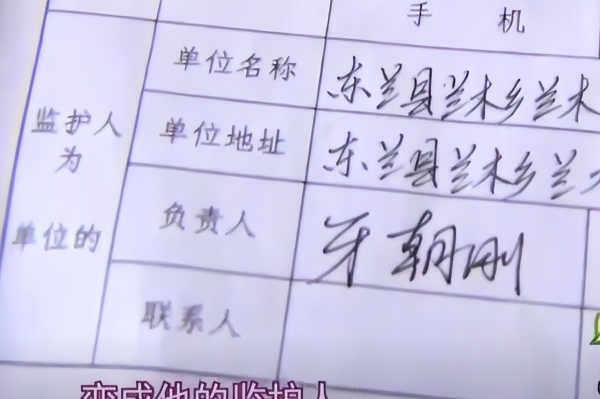 手 机
单位名称 东兰县兰木乡兰木
监护人
为
单位的
单位地址 东兰县兰木乡兰
负责人 牙朝刚
联系人
变成他的监护人